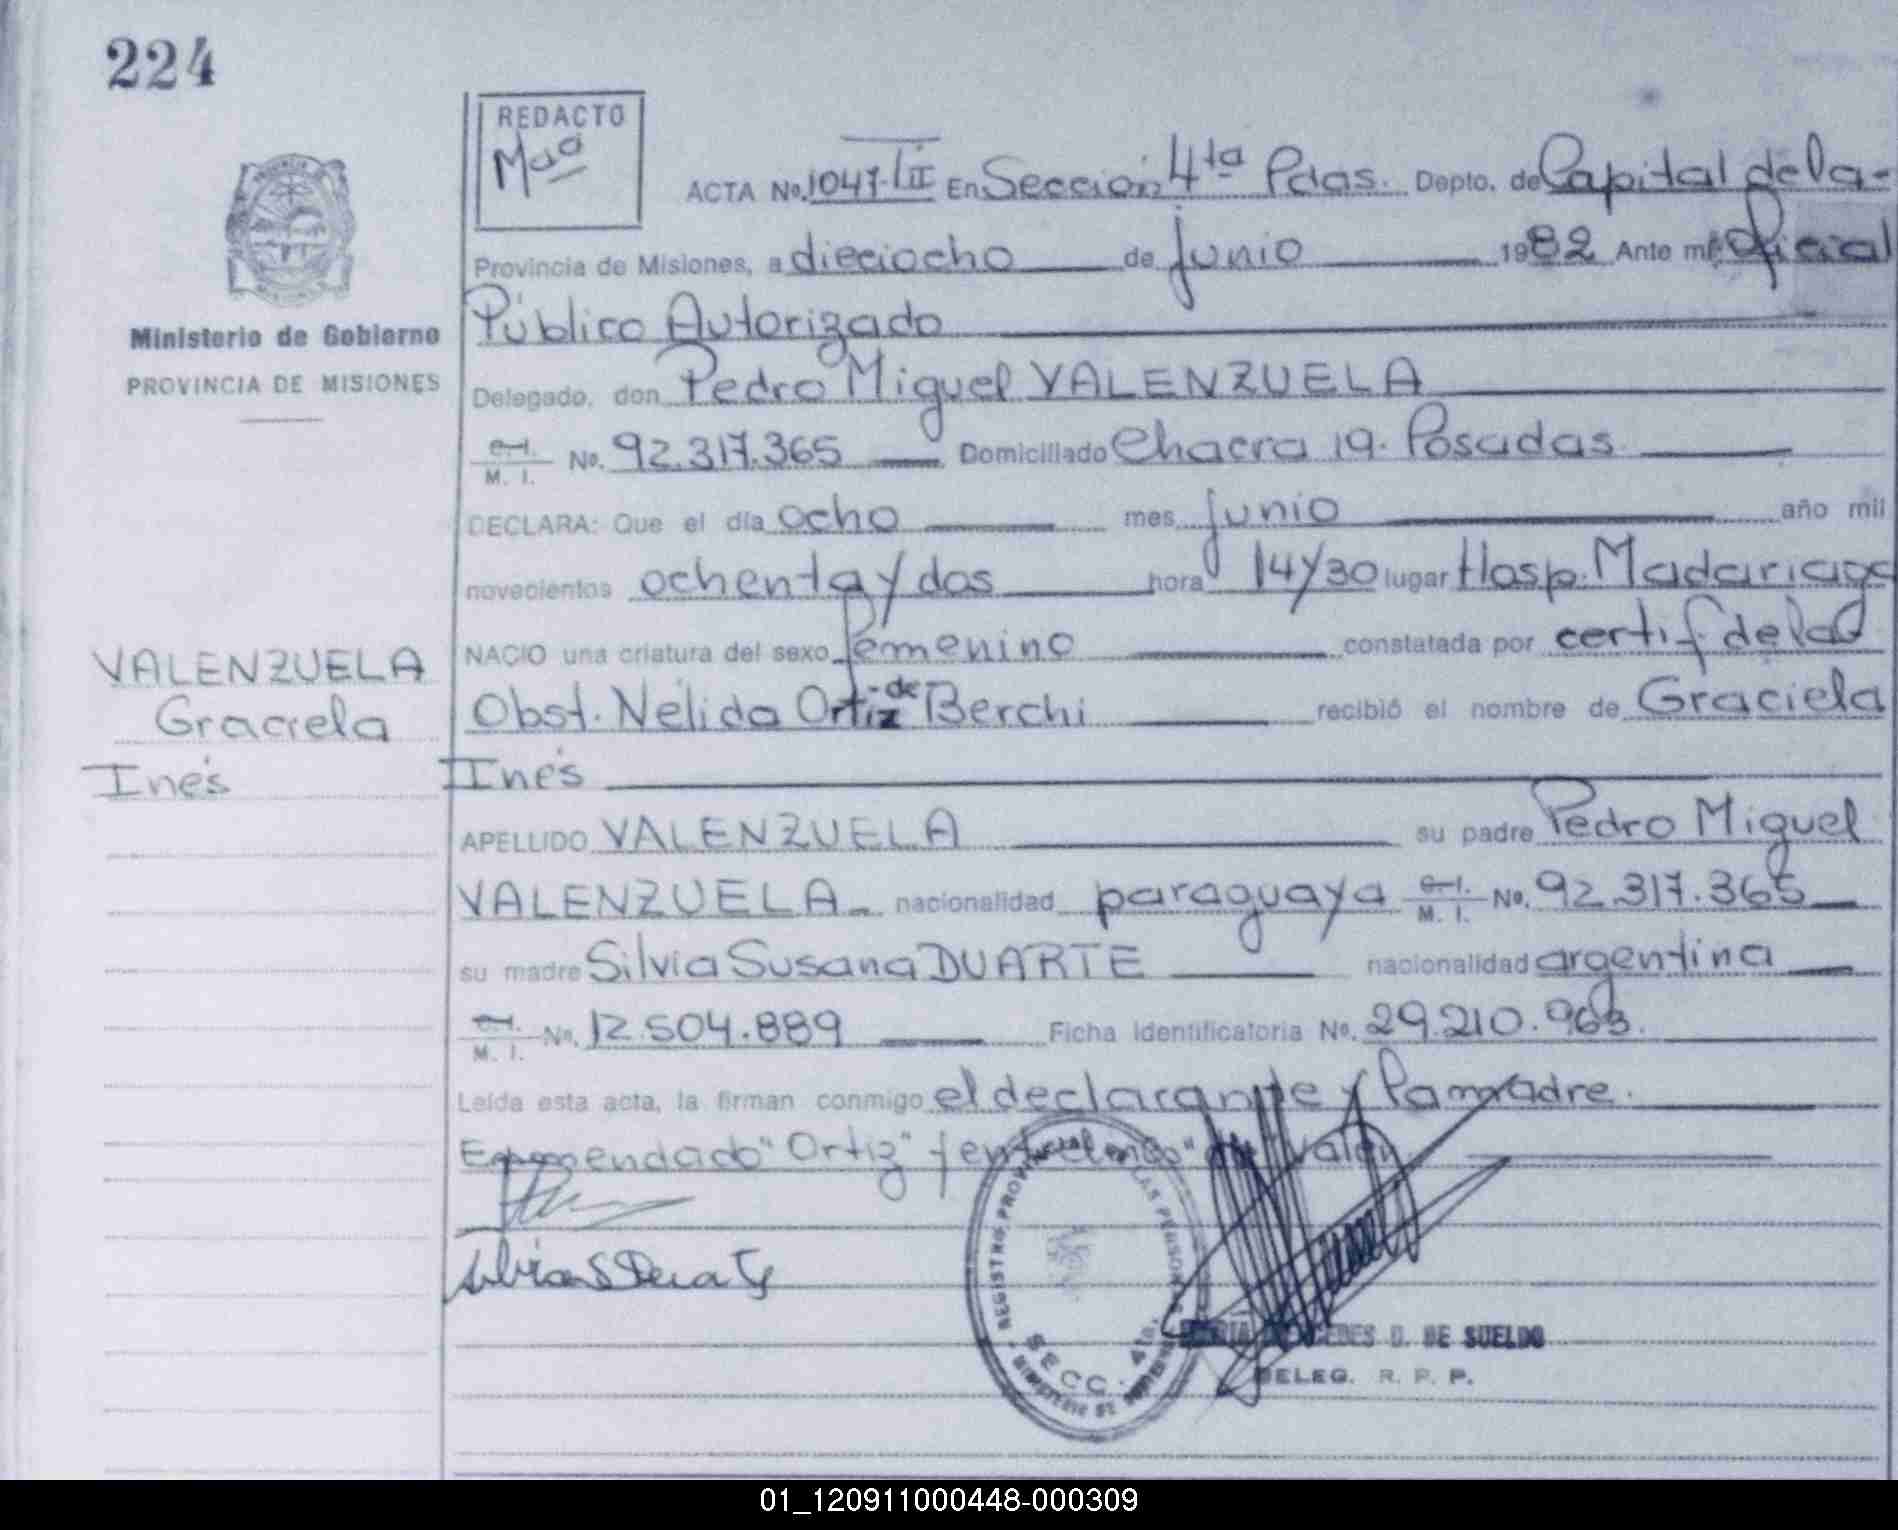 224
REDACTO
Mdd
PROVINCIA
ACTA No. 1047-III En Sección 4ta Pdas. Depto. de Capital de la-
Provincia de Misiones, a dieciocho de junio 1982 Ante mí: Oficial
Público Autorizado
Ministerio de Gobierno
PROVINCIA DE MISIONES
Delegado, don Pedro Miguel VALENZUELA
C.I. M. I. No. 92.317.365 Domiciliado Chacra 19. Posadas.
DECLARA: Que el día ocho mes junio año mil
novecientos ochenta y dos hora 14y30 lugar Hosp. Madariaga
NACIO una criatura del sexo femenino constatada por certif de la
VALENZUELA
Graciela
Inés
Obst. Nélida Ortiz -de Berchi recibió el nombre de Graciela
Inés
APELLIDO VALENZUELA su padre Pedro Miguel
VALENZUELA nacionalidad paraguaya C.I. M. I. No. 92.317.365
su madre Silvia Susana DUARTE nacionalidad argentina
C.I. M. I. No. 12.504.889 Ficha Identificatoria No. 29.210.963.
Leída esta acta, la firman conmigo el declarante y la madre.
Enmendado "Ortiz" y entrelíneo "de" Valen
Silvia S Duarte
REGISTRO PROVINCIAL DE LAS PERSONAS
SECC. 4ta.
MINISTERIO DE GOBIERNO
MARIA MERCEDES D. DE SUELDO
DELEG. R. P. P.
01_120911000448-000309